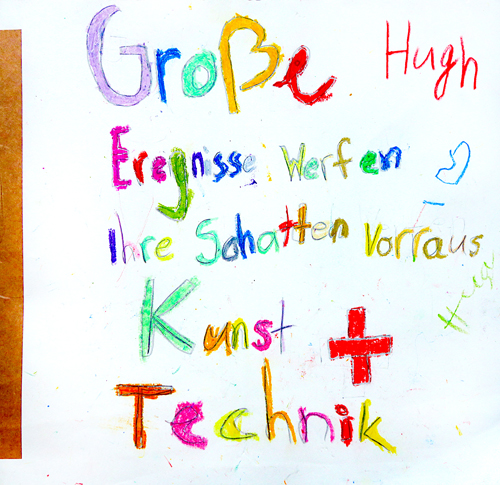 Große
Hugh
Eregnisse Werfen
Ihre Schatten Vorraus
Kunst +
Technik